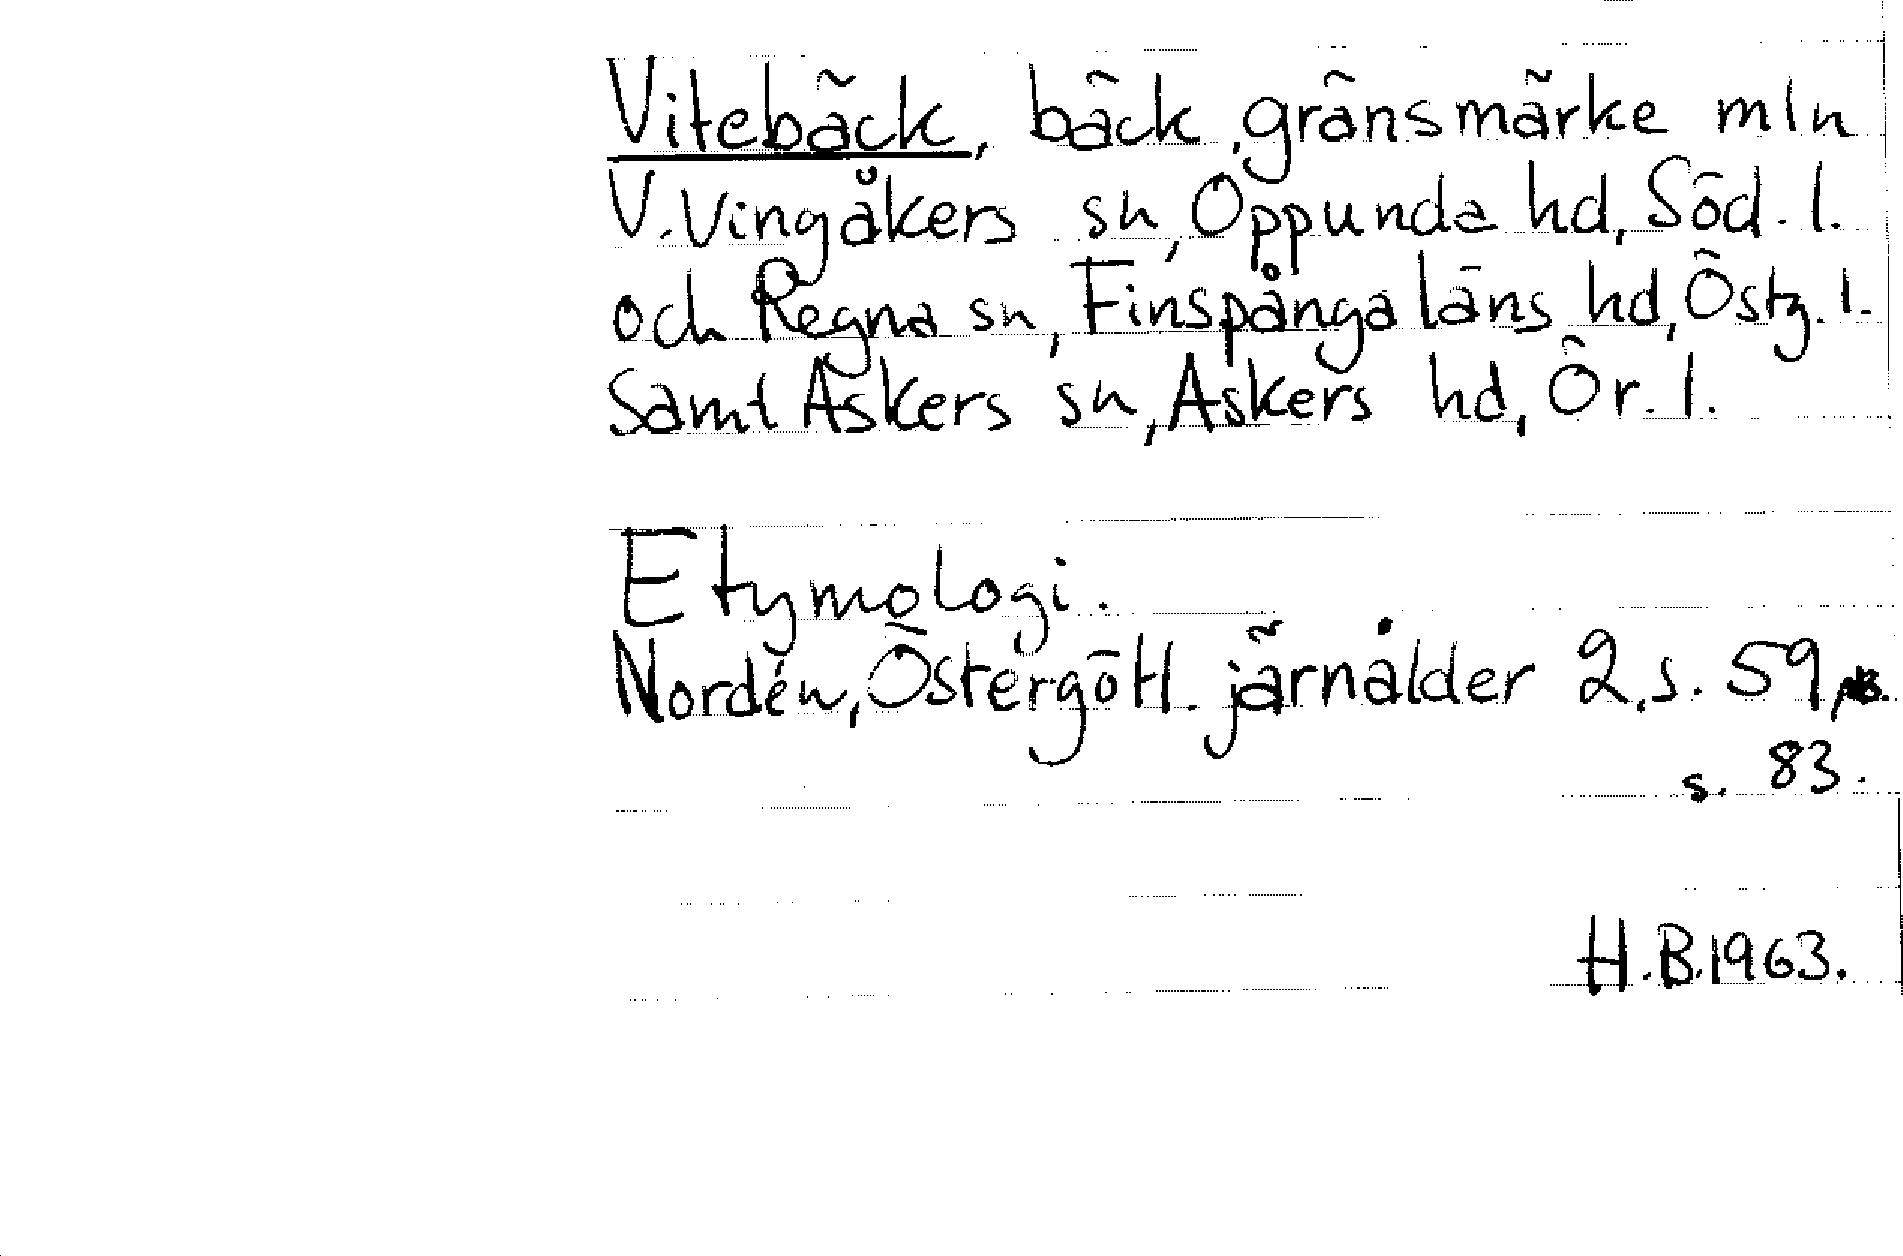 Vitebäck, bäck, gränsmärke mln
V. Vingåkers sn, Oppunda hd, Söd. l.
och Regna sn, Finspånga läns hd, Östg. l.
samt Askers sn, Askers hd, Ör. l.
Etymologi.
Nordén, Östergötl. järnålder 2, s. 59,
s. 83.
H.B. 1963.